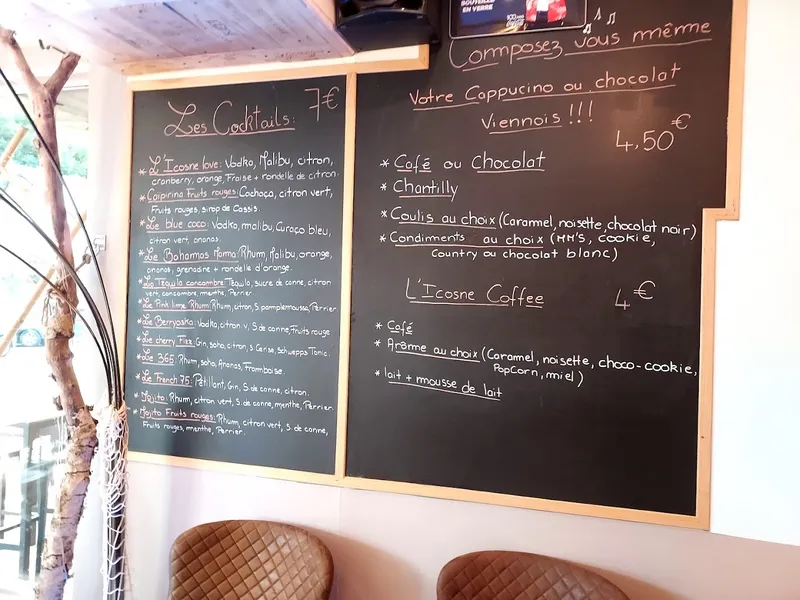 BOUTEILLE
EN VERRE
Les Cocktails: 7€
* L'Icosne love: Vodka, Malibu, citron,
cranberry, orange, Fraise + rondelle de citron.
* Caipirina Fruits rouges: Cachaça, citron vert,
Fruits rouges, sirop de Cassis.
* Le blue coco: Vodka, malibu, Curaço bleu,
citron vert, ananas.
* Le Bahamas Mama: Rhum, Malibu, orange,
ananas, grenadine + rondelle d'orange.
* La Tequila concombre: Tequila, sucre de canne, citron
vert, concombre, menthe, Perrier.
* Le Pink lime Rhum: Rhum, citron, S. pamplemousse, Perrier
* Le Berryoska: Vodka, citron v, S. de canne, Fruits rouge
* Le cherry Fizz: Gin, soho, citron, s. Cerise, Schwepps Tonic.
* Le 365: Rhum, soho, Ananas, Framboise.
* Le French 75: Pétillant, Gin, S. de canne, citron.
* Mojito: Rhum, citron vert, S. de canne, menthe, Perrier.
* Mojito Fruits rouges: Rhum, citron vert, S. de canne,
Fruits rouges, menthe, Perrier.
Composez vous même
Votre Cappucino ou chocolat
Viennois!!! 4.50€
* Café ou Chocolat
* Chantilly
* Coulis au choix (Caramel, noisette, chocolat noir)
* Condiments au choix (MM'S, cookie,
Country ou chocolat blanc)
L'Icosne Coffee 4€
* Café
* Arôme au choix (Caramel, noisette, choco-cookie,
PopCorn, miel)
* lait + mousse de lait